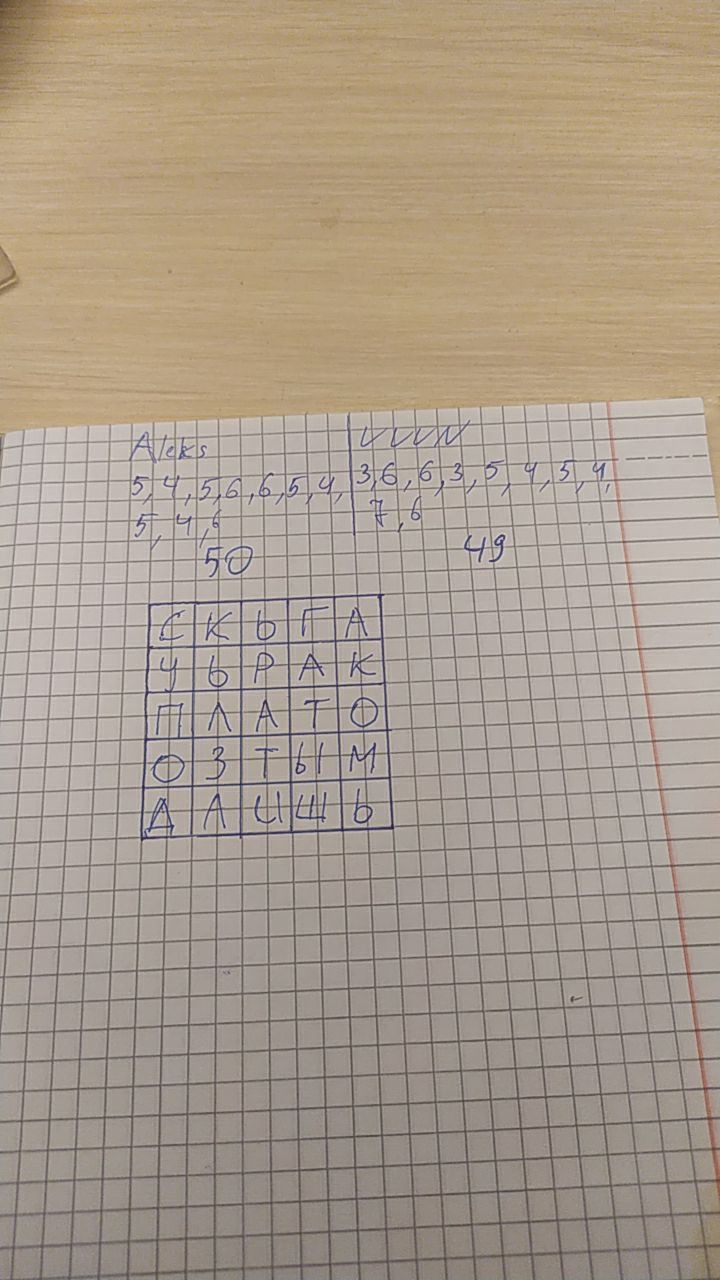 Aleks
5, 4, 5, 6, 6, 5, 4,
3, 6, 6, 3, 5, 4, 5, 4,
5, 4, 6
7, 6
50
49
С К Ь Г А
У Ь Р А К
П Л А Т О
О З Т Ы М
Д А Ц Щ Ь